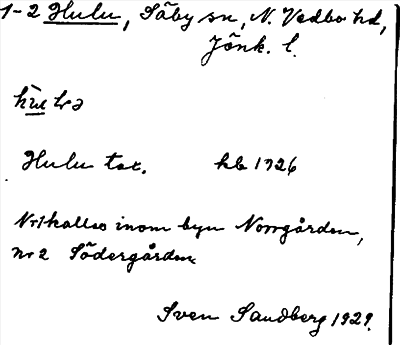 1-2 Hulu, Säby sn, N. Vedbo hd,
Jönk. l.
Hulu tot. hb 1726
Nr 1 kallas inom byn Norrgården,
nr 2 Södergården
Sven Sandberg 1929.